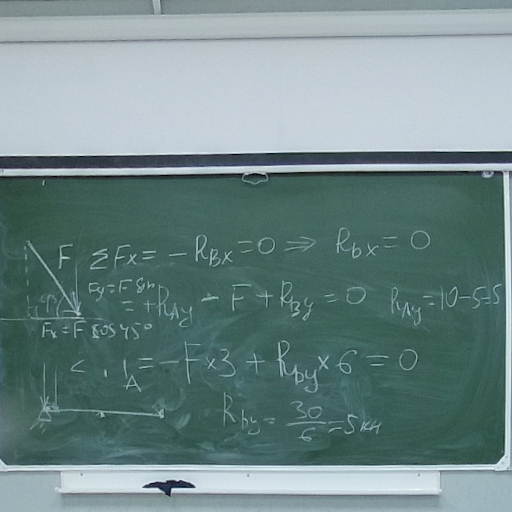 F ΣFx = - RBx = 0 ⇒ Rbx = 0
Fy = F sin
= + RAy - F + RBy = 0 RAy = 10 - 5 = 5
45°
Fx = F cos 45°
A = - F x 3 + Rby x 6 = 0
Rby = 30/6 = 5 кн